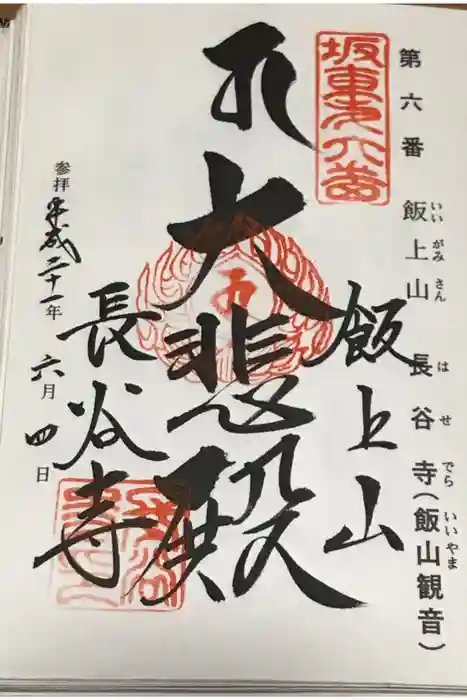 第六番 飯上山 長谷寺(飯山観音)
いいがみさん はせでら いいやま
坂東第六番
飯上山
大悲殿
長谷寺
参拝 平成二十一年 六月 四日